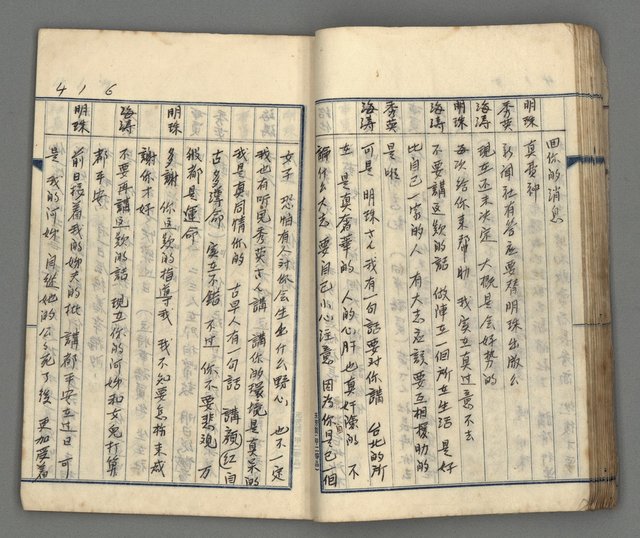 回你的消息
明珠 真費神
秀英 新聞社有答应要替明珠出版么
海濤 現在还未決定 大概是会好势的
明珠 每次给你來幇助 我实在真过意不去
海濤 不要講這欵的話 做陣在一個所在生活 是好
比自己一家的人 有大志应該要互相援助的
秀英 是啦
海濤 可是 明珠さん 我有一句話要对你講 台北的所
在 是真奢華的 人的心肝也真奸險的 不
論什么大志 要自己小心注意 因為你是已一個
女子 恐怕有人对你会生出什么野心 也不一定
我也有听見秀英さん講 講你的環境是真呆的
我是真同情你的 古早人有一句話 講顏(紅)自
古多薄命 实在不錯 不过 你不要悲观 万
般都是運命
明珠 多謝 你這欵的指導我 我不知要怎粉來感
謝你才好
海濤 不要再講這欵的話 現在你的阿妳和女兒打算
都平安
明珠 前日接着我的妳夫的批 講都平安在过日 可
是 我的阿妳 自從她的公死了後 更加要着
416